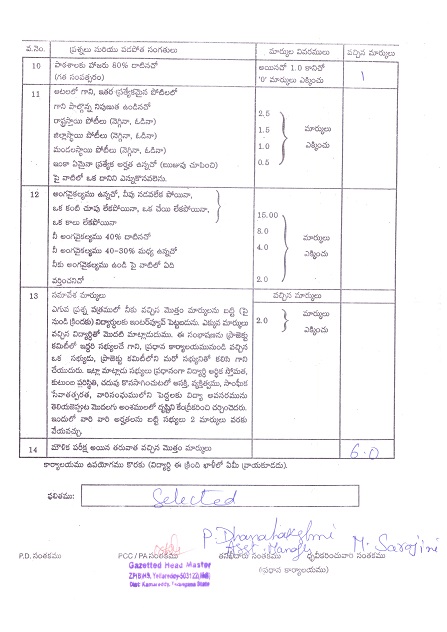 వ.నెం. ప్రశ్నలు మరియు పడపోత సంగతులు మార్కుల వివరములు వచ్చిన మార్కులు
10 పాఠశాలకు హాజరు 80% దాటినచో అయినచో 1.0 కానిచో 1
(గత సంవత్సరం) '0' మార్కులు ఎక్కించు
11 ఆటలలో గాని, ఇతర ప్రత్యేకమైన పోటీలలో
గాని పాల్గొన్న నిపుణత ఉండినచో 2.5
రాష్ట్రస్థాయి పోటీలు (నెగ్గినా, ఓడినా) 1.5 మార్కులు
జిల్లాస్థాయి పోటీలు (నెగ్గినా, ఓడినా) 1.0 ఎక్కించు
మండలస్థాయి పోటీలు (నెగ్గినా, ఓడినా) 0.5
ఇంకా ఏమైనా ప్రత్యేక అర్హత ఉన్నచో (ఋజువు చూపించి)
పై వాటిలో ఒక దానిని ఎన్నుకొనవలెను.
12 అంగవైకల్యము ఉన్నచో, నీవు నడవలేక పోయినా,
ఒక కంటి చూపు లేకపోయినా, ఒక చేయి లేకపోయినా, 15.00
ఒక కాలు లేకపోయినా 8.0
నీ అంగవైకల్యము 40% దాటినచో 4.0 మార్కులు
నీ అంగవైకల్యము 40-30% మధ్య ఉన్నచో ఎక్కించు
నీకు అంగవైకల్యము ఉండి పై వాటిలో ఏది 2.0
వర్తించనిచో
13 సమావేశ మార్కులు వచ్చిన మార్కులు
ఎగువ ప్రశ్న పత్రములో నీకు వచ్చిన మొత్తం మార్కులను బట్టి (పై
నుండి క్రిందకు) విద్యార్థులకు ఇంటర్వ్యూవ్ పెట్టబడును. ఎక్కువ మార్కులు 2.0 మార్కులు
వచ్చిన విద్యార్థితో మొదటి మాట్లాడుదుము. ఈ సంభాషణను ప్రాజెక్టు ఎక్కించు
కమిటీలో ఇద్దరి సభ్యులచే గాని, ప్రధాన కార్యాలయమునుండి వచ్చిన
ఒక సభ్యుడు, ప్రాజెక్టు కమిటీలోని మరో సభ్యునితో కలిసి గాని
చేయుదురు. ఇట్లా మాట్లాడు సభ్యులు ప్రధానంగా విద్యార్థి ఆర్థిక స్తోమత,
కుటుంబ పరిస్థితి, చదువు కొనసాగించుటలో ఆసక్తి, వ్యక్తిత్వము, సాంఘీక
సేవాతత్పరత, వారిసంఘములోని పెద్దలకు విద్యా అవసరమును
తెలియజెప్పుట మొదలగు అంశములలో దృష్టిని కేంద్రీకరించి చర్చించెదరు.
ఇందులో వారి వారి అర్హతలను బట్టి సభ్యులు 2 మార్కులు వరకు
వేయవచ్చు.
14 మౌలిక పరీక్ష అయిన తరువాత వచ్చిన మొత్తం మార్కులు 6.0
కార్యాలయము ఉపయోగము కొరకు (విద్యార్థి ఈ క్రింది ఖాళీలో ఏమీ వ్రాయకూడదు).
ఫలితము: Selected
P. Dhanalakshmi
Asst. Manager M. Sarojini
P.D. సంతకము PCC / PA సంతకము సంతకము ధృవీకరించువారి సంతకము
Gazetted Head Master (ప్రధాన కార్యాలయము)
ZPHS, Yellareddy-503122
Dist: Kamareddy, Telangana State